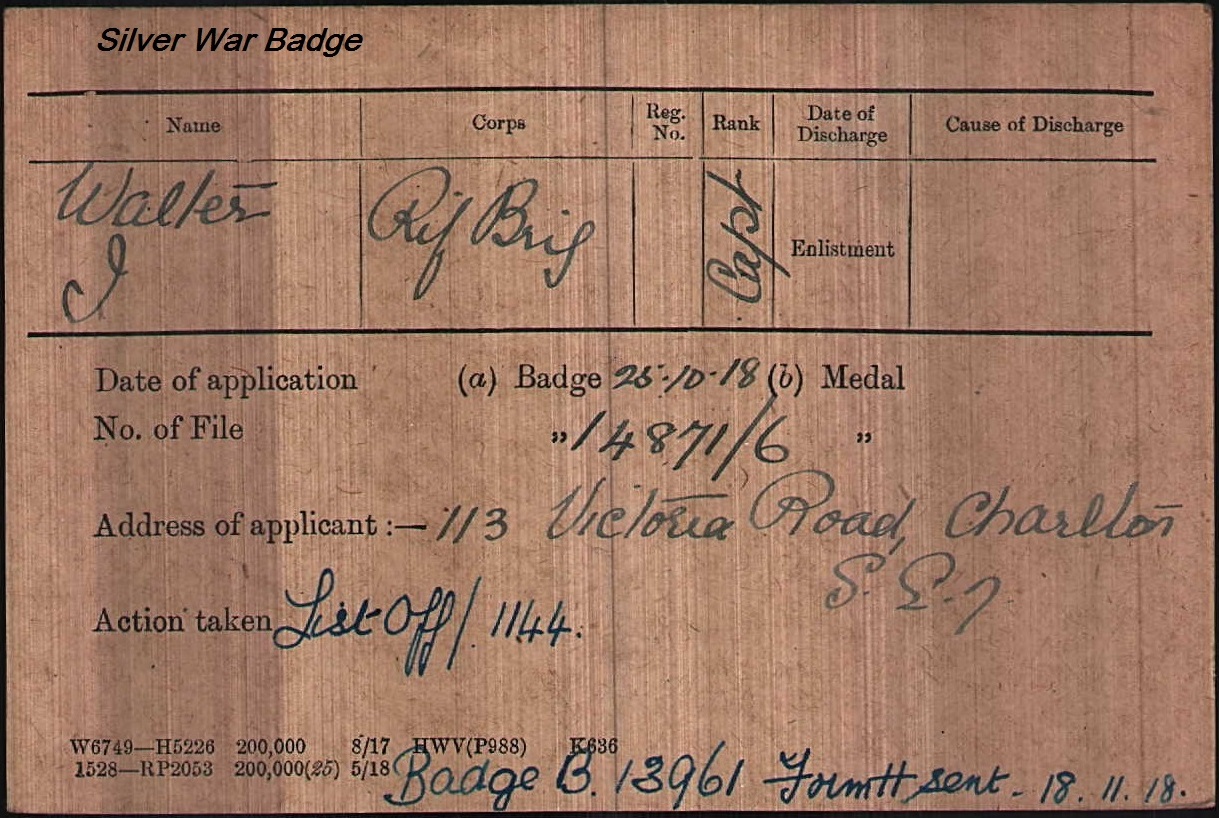 Silver War Badge
Name Corps Reg. No. Rank Date of Discharge Cause of Discharge
Walter Rif Brig Capt Enlistment
I
Date of application (a) Badge 25.10.18 (b) Medal
No. of File „ 14871/6 „
Address of applicant :— 113 Victoria Road, Charlton
S.E.7
Action taken List Off/1144.
W6749—H5226 200,000 8/17 HWV(P988) K636
1528—RP2053 200,000(25) 5/18
Badge B. 13961 Form H sent. 18.11.18.